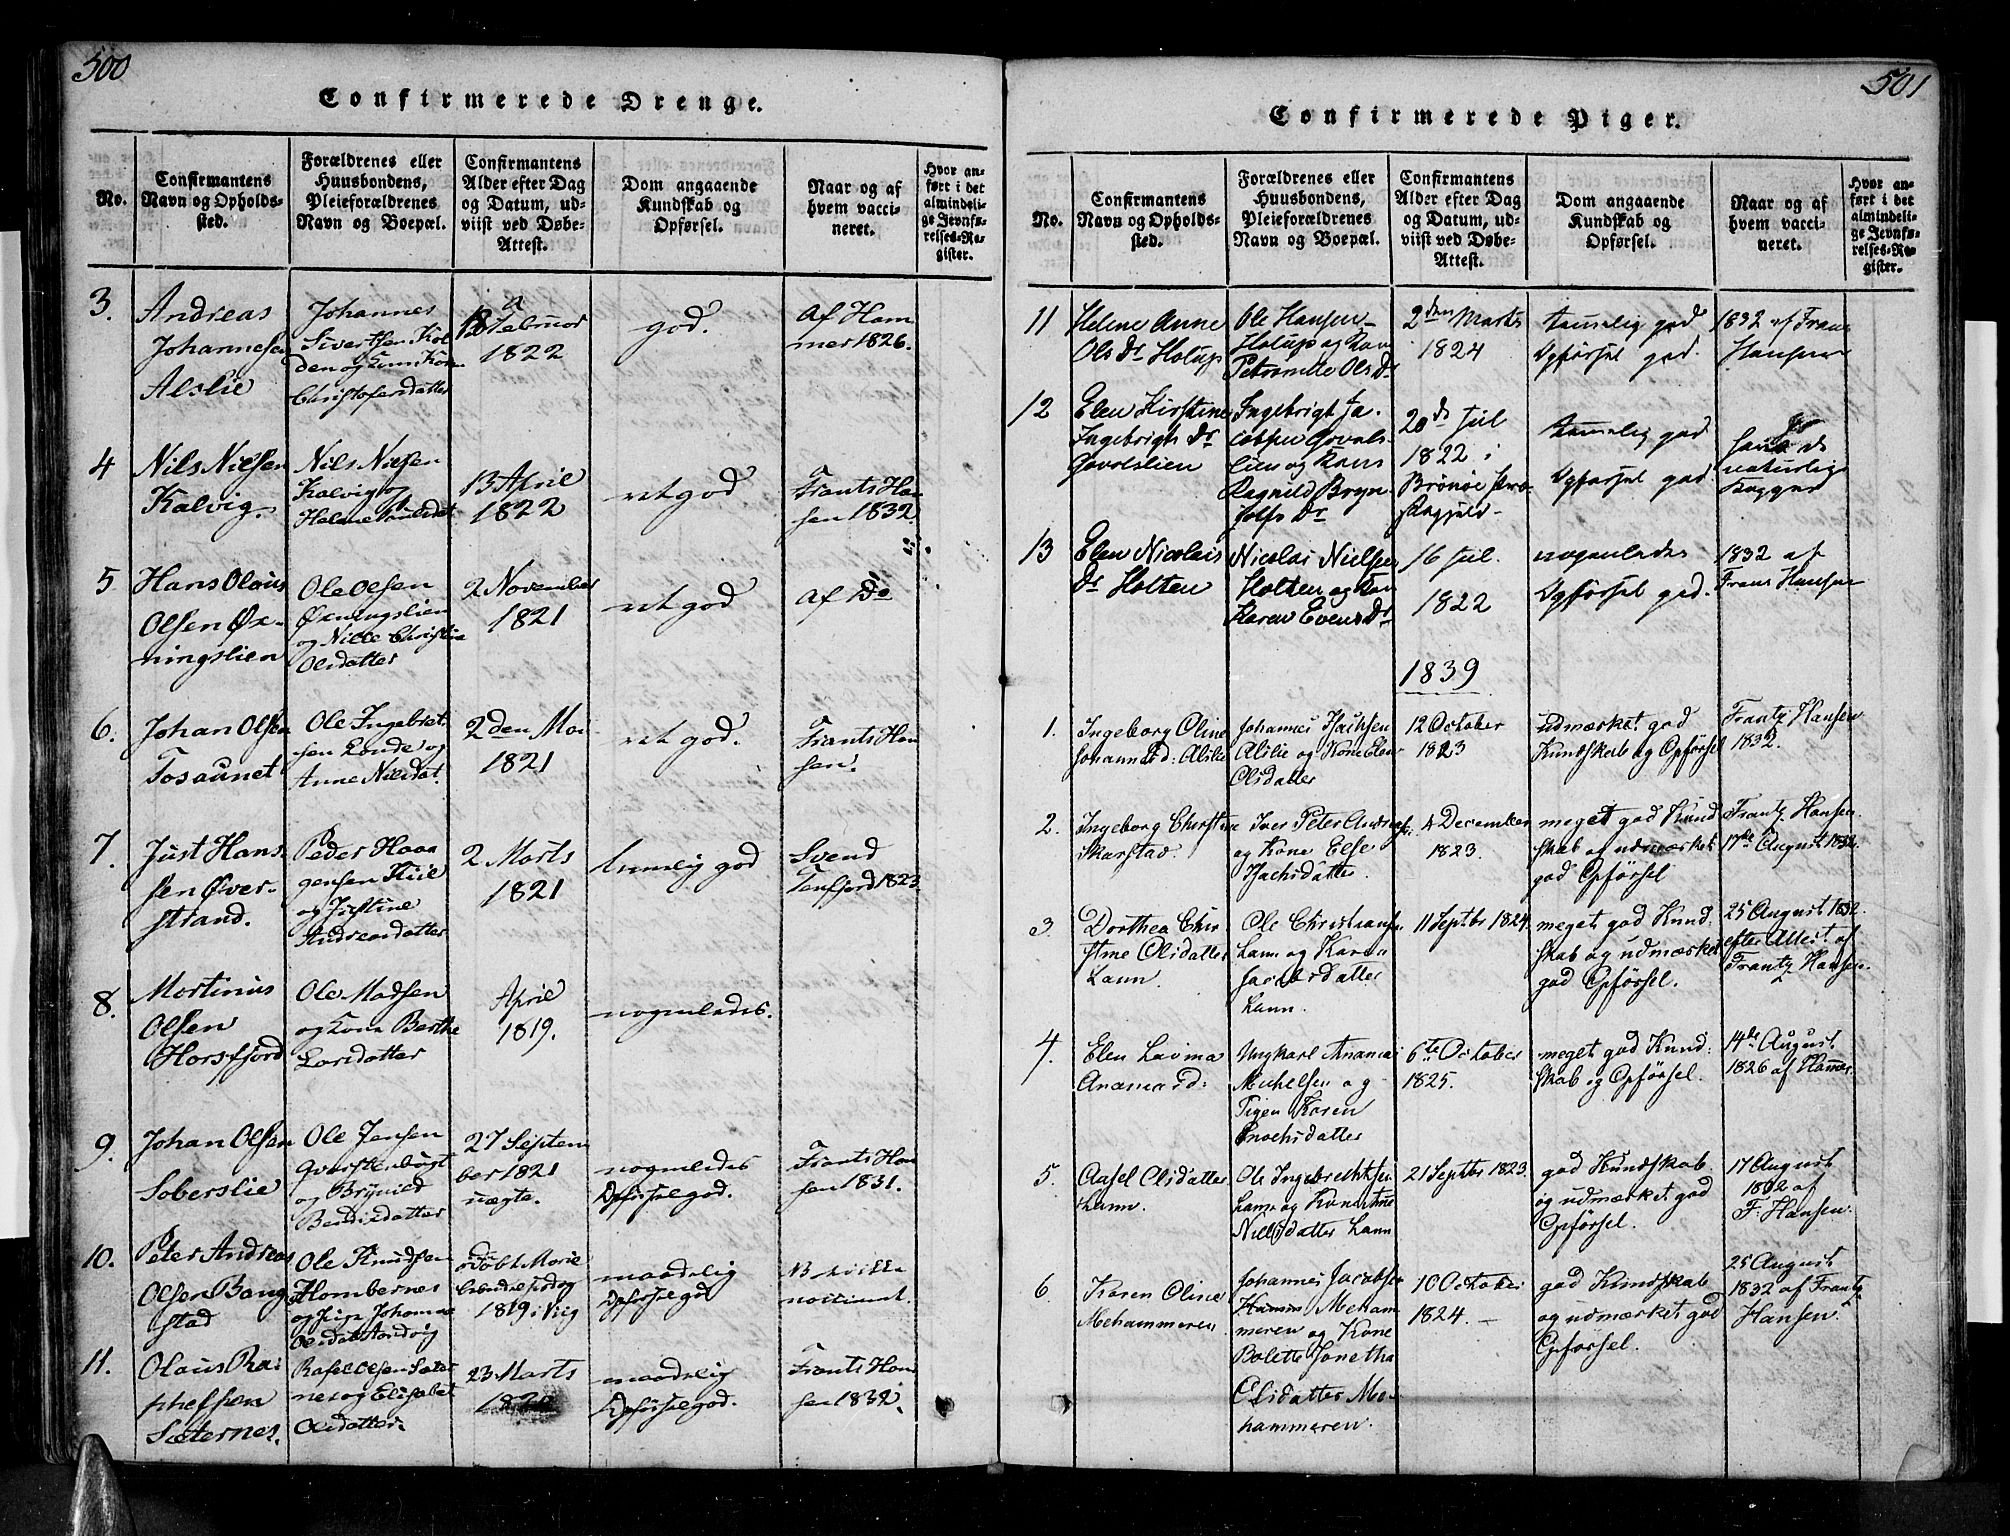 500
Confirmerede Drenge.
No.
Confirmantens
Navn og Opholds-
sted.
Forældrenes eller
Huusbondens,
Pleieforældrenes
Navn og Boepæl.
Confirmantens
Alder efter Dag
og Datum, ud-
viist ved Døbe-
Attest.
Dom angaaende
Kundskab og
Opførsel.
Naar og af
hvem vacci-
neret.
Hvor an-
ført i det
almindeli-
ge Jevnfø-
relses-Re-
gister.
3.
Andreas
Johannesen
Alslie
Johannes
Sivertsen Kol
den og Kone
Christophersdatter
18 Februar
1822
god.
Af Ham
mer 1826.
4
Nils Nilsen
Kalvig.
Nils Nilsen
Kalvig og
Helene
13 April
1822
ret god
Frants Han
sen 1832.
5
Hans Olaus
Olsen Øx-
ningslien
Ole Olsen
Øxningslien
og Nille Christin
Olsdatter
2 November
1821
ret god
af Do
6.
Johan Olsen
Tosaunet
Ole Ingebret
sen Lande og
Anne Nilsdat.
2den Mai
1821
ret god.
Frants Han
sen.
7.
Just Hans
sen Øver-
strand.
Peder Haa
gensen
og Justine
Andreasdatter
2 Marts
1821
temlig god
Svend
Tenfjord 1823
8.
Martinus
Olsen
Horsfjord
Ole Madsen
og Kone Berthe
Larsdatter
April
1819.
nogenledes.
9.
Johan Olsen
Soberslie
Ole Jensen
og Brynild
Bendixdatter
27 Septem
ber 1821
uægte.
nogenledes
Opførsel god.
Frants Han
sen 1831.
10.
Peter Andreas
Olsen Bang
stad
Ole Knudsen
Hombernes
og Pige Johanna
døbt Marie
1819 i Viig
maadelig
Opførsel god
11.
Olaus Ra-
phelsen
Sæternes.
Rafel Olsen Sæter
nes og Elisabet
Olsdatter.
23 Marts
maadelig
Opførsel god.
Frants Han
sen 1832.
501
Confirmerede Piger.
No.
Confirmantens
Navn og Opholds-
sted.
Forældrenes eller
Huusbondens,
Pleieforældrenes
Navn og Boepæl.
Confirmantens
Alder efter Dag
og Datum, ud-
viist ved Døbe-
Attest.
Dom angaaende
Kundskab og
Opførsel.
Naar og af
hvem vacci-
neret.
Hvor an-
ført i det
almindeli-
ge Jevnfø-
relses-Re-
gister.
11
Helene Anne
Ols Dr Holup
Ole Hansen
Holup og Kone
Petronelle Ols Dr
2den Marts
1824
tæmelig god
Opførsel god.
1832 af Frans
Hansen
12
Elen Kirstine
Ingebrigts Dr
Gavolslien
Ingebrigt Ja-
cobsen Govals-
lien og Kone
Ragnild Bryn-
jolfs Dr
20de Jul
1822 i
Brønøe Præ
stegjeld-
tæmelig god
Opførsel god
havde de
naturlige
Kopper
13
Elen Nicolais
Dr Holten
Nicolai Nielsen
Holten og Kone
Karen Evens Dr
16 Jul.
1822
nogenledes
Opførsel god.
1832 af
Frans Hansen
1839
1.
Ingeborg Oline
Johannesd: Alslie
Johannes Isachsen
Alslie og Kone Elen
Olsdatter
12 October
1823
udmærket god
Kundskab og Opførsel
Frantz Hansen
1832.
2.
Ingeborg Christine
Skarstad.
Iver Peter Andreas
og Kone Else
Isachsdatter
4 December
1823.
meget god Kund
skab og udmærket
god Opførsel
Frantz Hansen
17de August 1832.
3.
Dorthea Chir
stine Olsdatter
Lann.
Ole Christiansen
Lann og Karen
Jacobsdatter
Lann.
11 Septbr 1824.
meget god Kund
skab og udmærket
god Opførsel.
25 August 1832.
efter Attest af
Frantz Hansen.
4.
Elen Lavina
Ananiasd:
Ungkarl Ananias
Michelsen og
Pigen Karen
Enochsdatter
6te October
1825.
meget god Kund:
skab og Opførsel.
14de August
1826 af Hamer.
5.
Aasel Olsdatter
Lann.
Ole Ingebrechtsen
Lann og Kone Stine
Nillsdatter Lann
21 Septbr 1823.
god Kundskab
og udmærket god
Opførsel.
17 August
1832 af
F. Hansen.
6.
Karen Oline
Mehammeren.
Johannes Jacobsen
Meham
meren og Kone
Bolette Jonetha
Elisdatter Me-
hammeren.
10 October
1824.
god Kundskab
og udmærket god
Opførsel.
25 August
1832 af Frantz
Hansen.